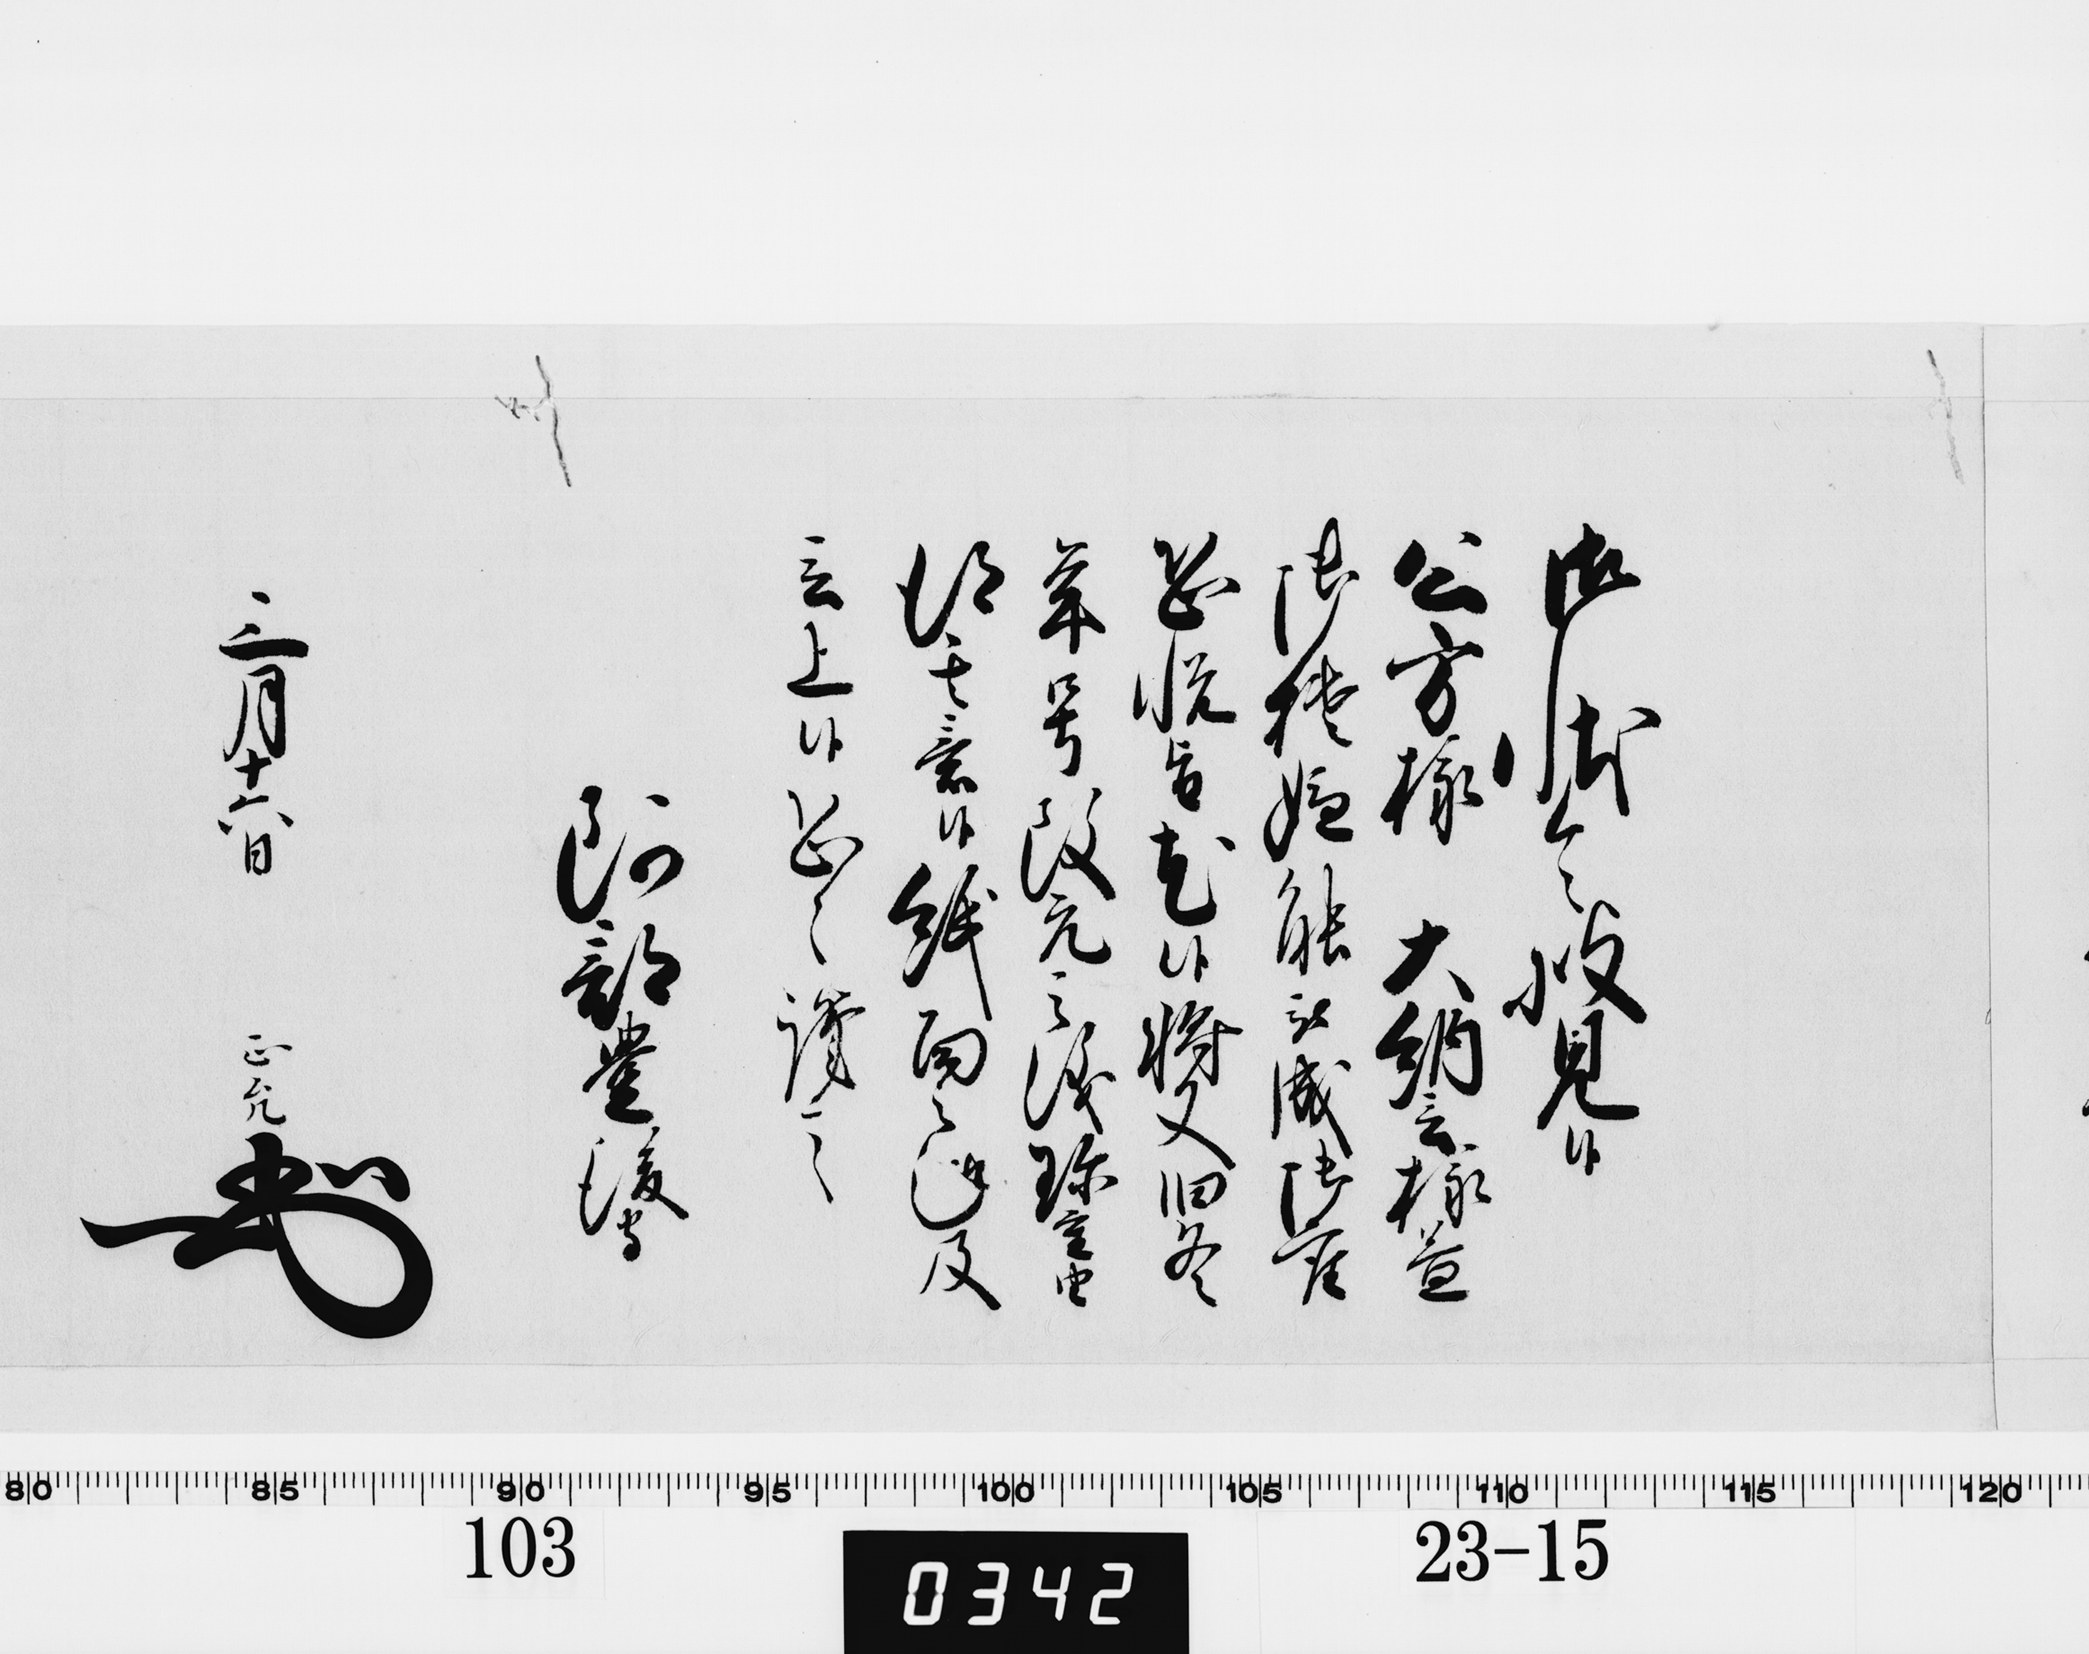 御状令披見候
公方様　大納言様益
御機嫌能被成御座
恐悦旨尤候将又旧冬
年号改元之儀珍重由
得其意候紙面之趣及
言上候恐々謹言
阿部豊後守
三月十六日
正允
80 85 90 95 100 105 110 115 120
103
0342
23-15